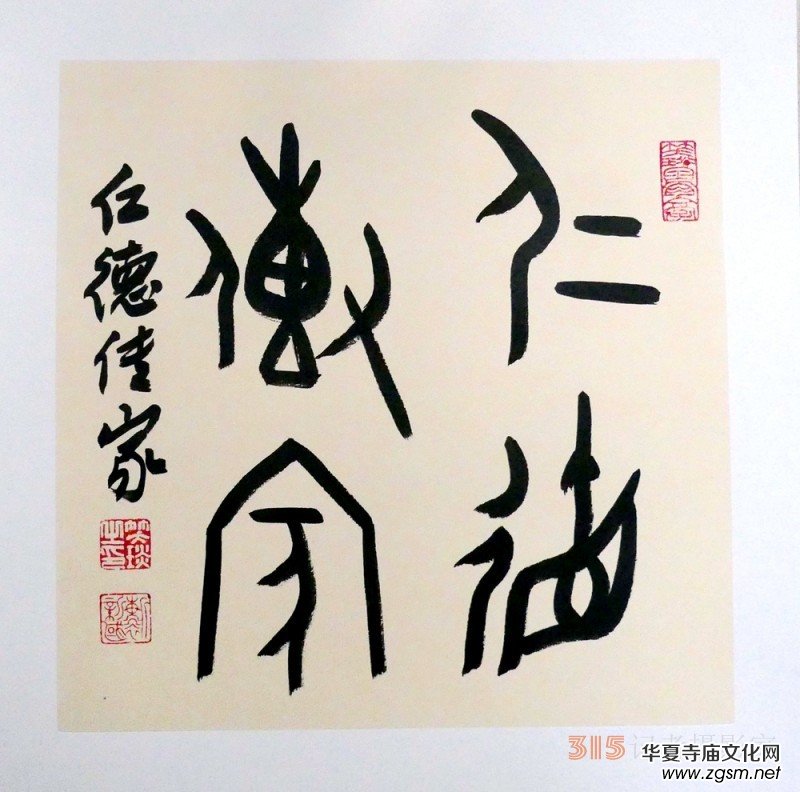 仁德
傳家
仁德傳家
笑琰
之印
315记者摄影家
华夏寺庙文化网
www.zgsm.net